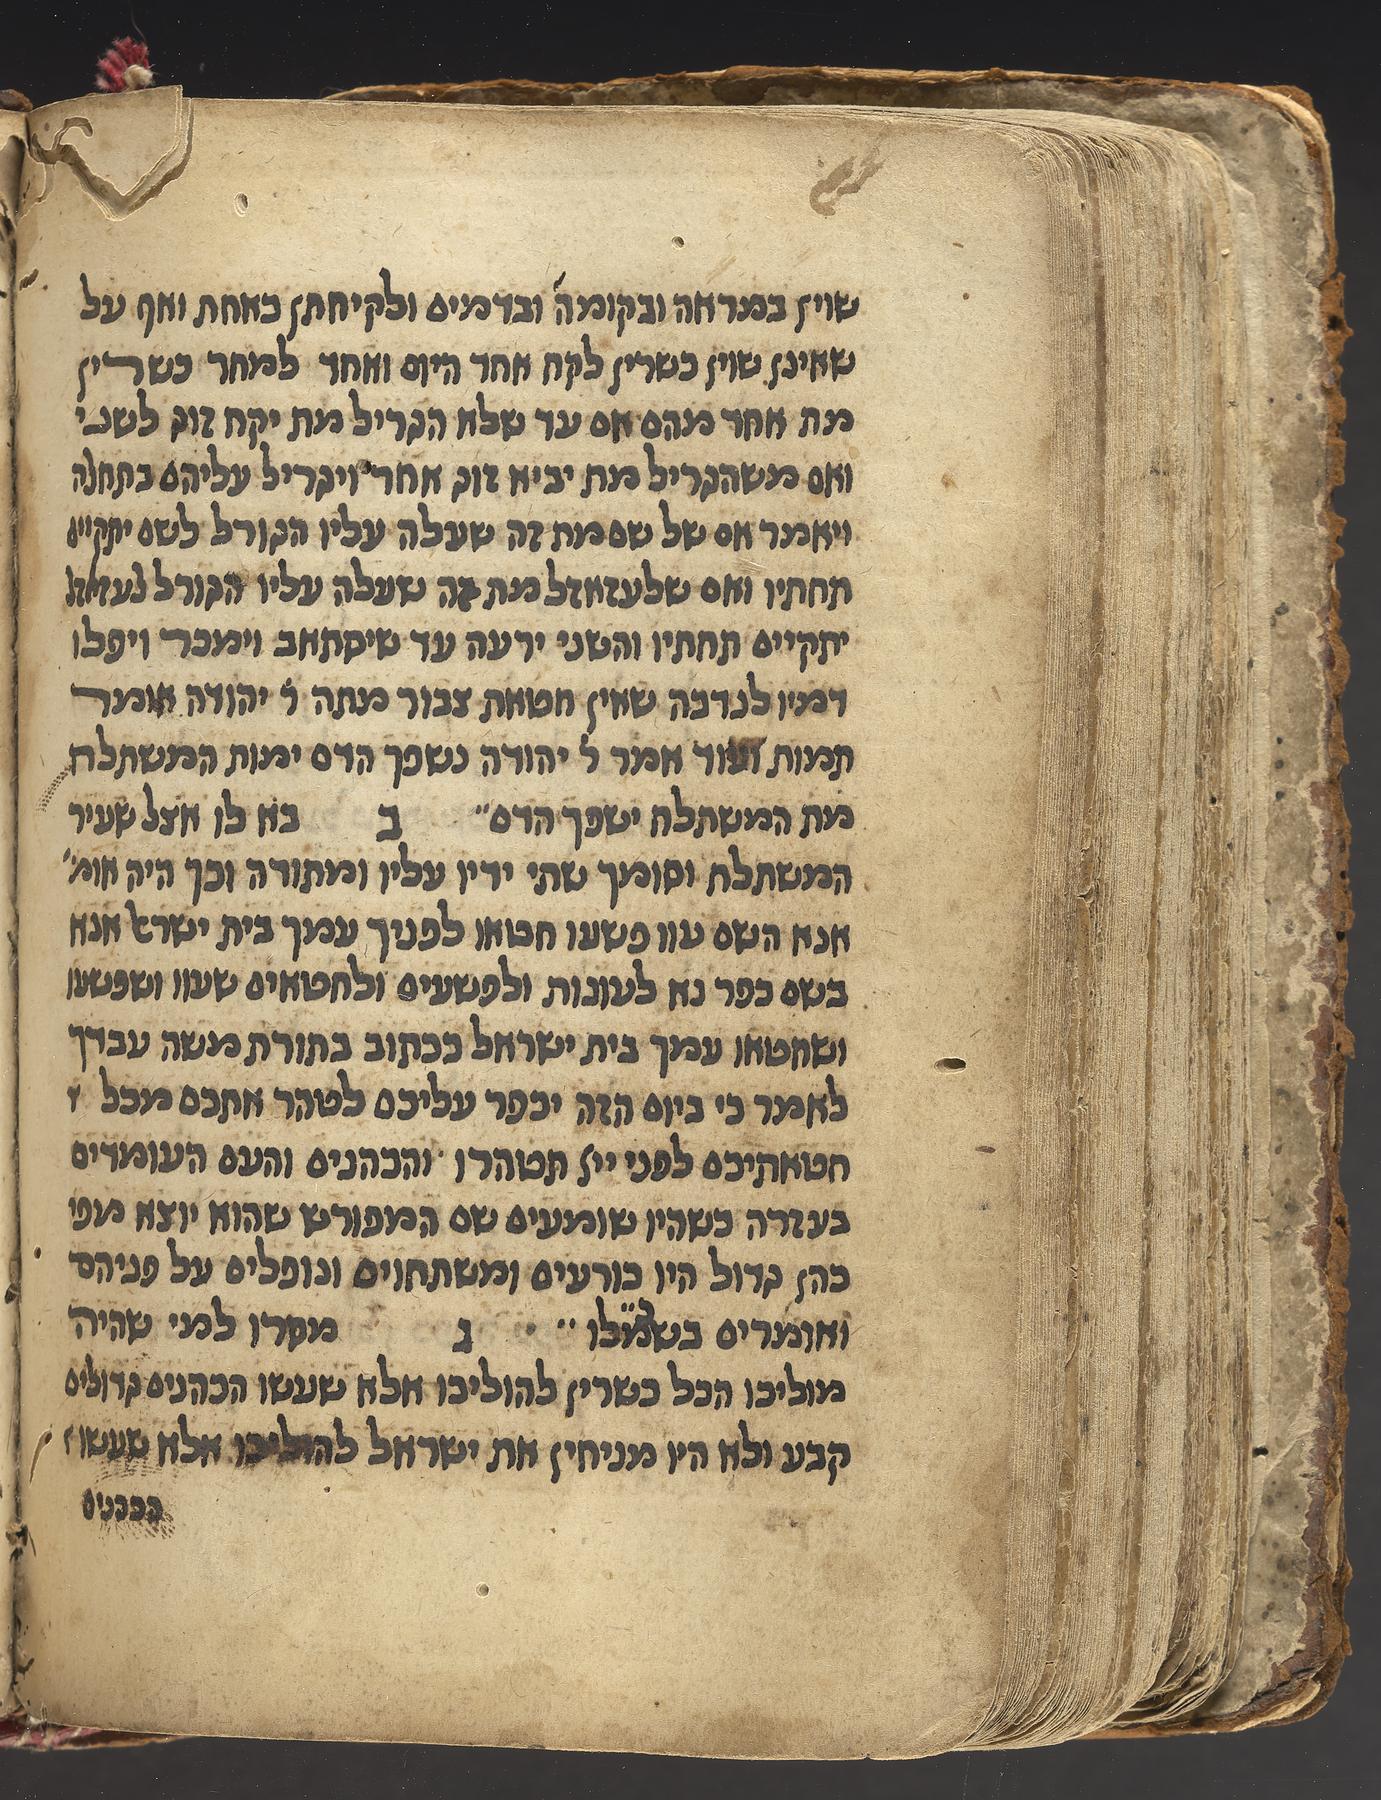 שוין במראה ובקומה ובדמים ולקיחתן כאחת ואף על
שאינן שוין כשרין לקח אחד היום ואחד למחר כשרין
מת אחד מהם אם עד שלא הגריל מת יקח זוג לשני
ואם משהגריל מת יביא זוג אחר ויגריל עליהם בתחלה
ויאמר אם של שם מת זה שעלה עליו הגורל לשם יתקיים
תחתיו ואם שלעזאזל מת זה שעלה עליו הגורל לעזאזל
יתקיים תחתיו והשני ירעה עד שיסתאב וימכר ויפלו
דמיו לנדבה שאין חטאת צבור מתה ר' יהודה אומר
תמות ועוד אמר ר' יהודה נשפך הדם ימות המשתלח
מת המשתלח ישפך הדם ב בא לו אצל שעיר
המשתלח וסומך שתי ידיו עליו ומתודה וכך היה אומ'
אנא השם עוו פשעו חטאו לפניך עמך בית ישראל אנא
בשם כפר נא לעונות ולפשעים ולחטאים שעוו ושפשעו
ושחטאו עמך בית ישראל ככתוב בתורת משה עבדך
לאמר כי ביום הזה יכפר עליכם לטהר אתכם מכל
חטאתיכם לפני ייי תטהרו והכהנים והעם העומדים
בעזרה כשהיו שומעים שם המפורש שהוא יוצא מפי
כהן גדול היו כורעים ומשתחוים ונופלים על פניהם
ואומרים בשמלו ג מסרו למי שהיה
מוליכו הכל כשרין להוליכו אלא שעשו הכהנים גדולים
קבע ולא היו מניחין את ישראל להוליכו אלא שעשו
הכהנים